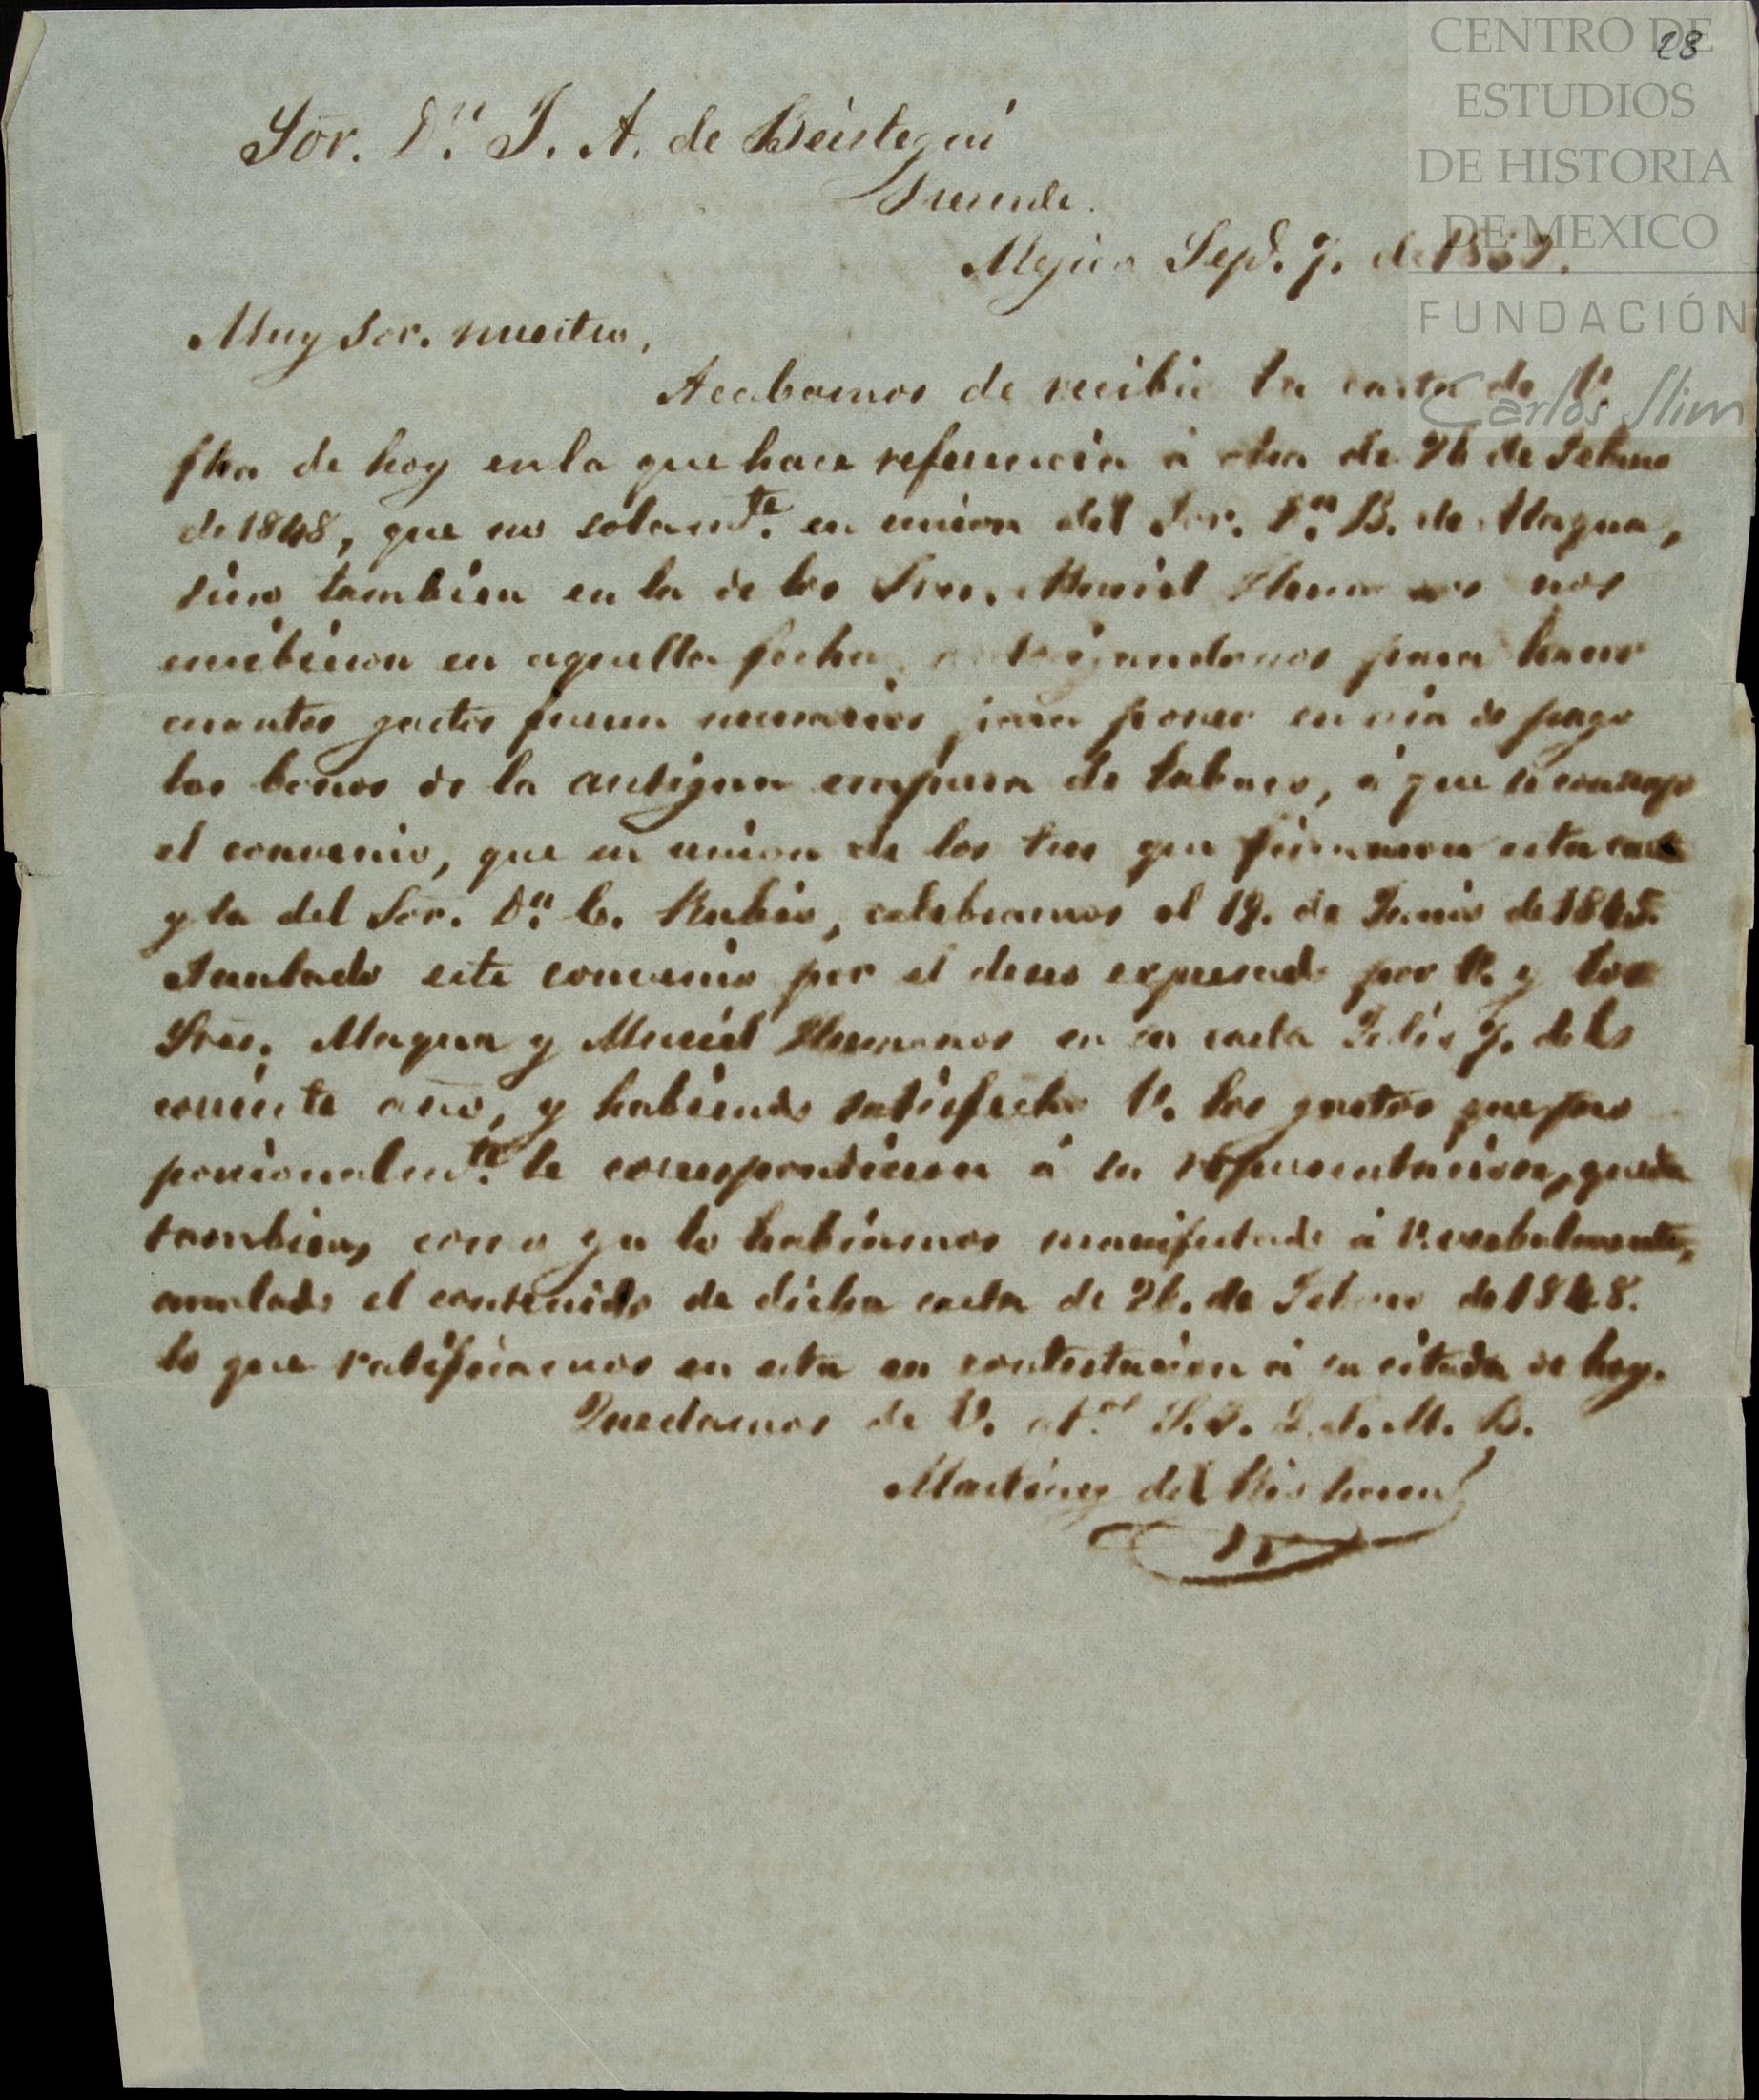 28
CENTRO DE
ESTUDIOS
DE HISTORIA
DE MEXICO
FUNDACIÓN
Carlos Slim
Sōr. Dn. J. A. de Beistegui
Presente.
Mejico Sepe. 7. de
Muy Sor. nuestro,
Acabamos de recibir la carta de V.
fha de hoy en la que hace referencia á otra de 26 de Febrero
de 1848, que no solamte. en union del Sor. Dn. B. de Maqua,
sino tambien en la de los Sres. Muriel Hermanos nos
escribieron en aquella fecha, autorizandonos para hacer
cuantos gastos fueren necesarios para poner en via de pago
los bonos de la antigua empresa de tabaco, á que se contrajo
el convenio, que en union de los tres que firmaron esta carta
y la del Sor. Dn. C. Rubio, celebramos el 19. de Junio de 1845.
Anulado este convenio por el deseo expresado por V. y los
Sres. Maqua y Muriel Hermanos en su carta 7. del
corriente año, y habiendo satisfecho V. los gastos que pro
porcionalmte. le correspondieron á su representacion, queda
tambien, como ya lo habiamos manifestado á V. verbalmente,
anulado el contenido de dicha carta de 26. de Febrero de 1848.
lo que ratificamos en esta en contestacion á su citada de hoy.
Quedamos de V. at.os S.S. Q.S.M.B.
Martinez del Rio herms